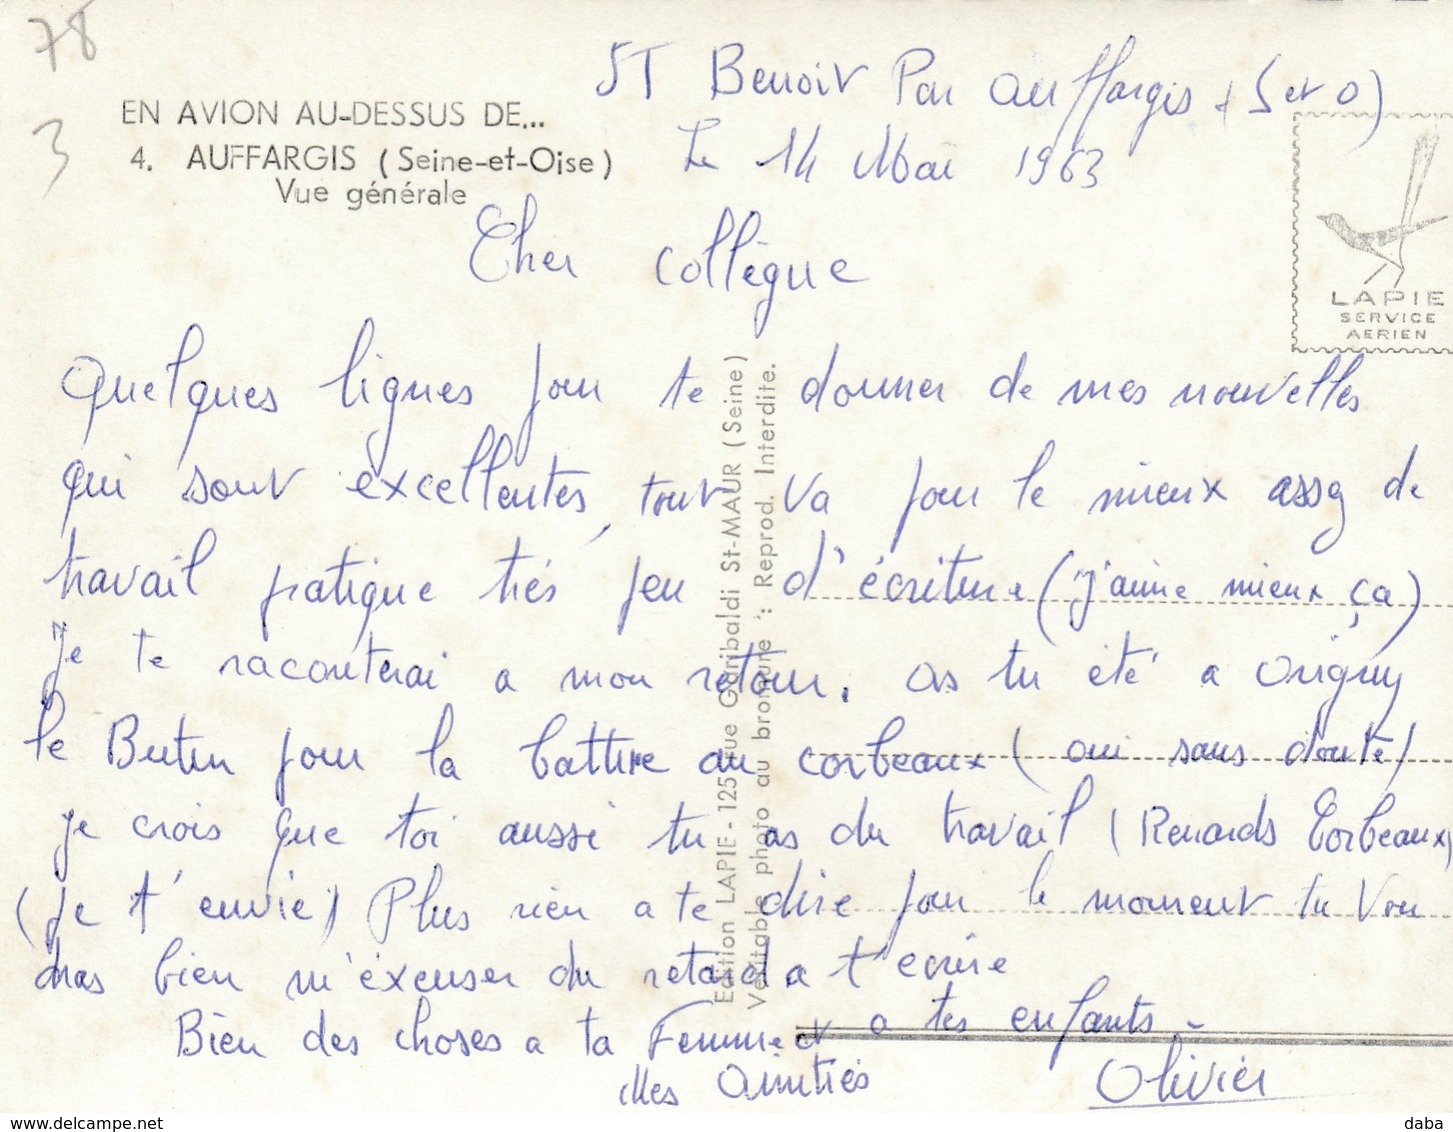 78
3
EN AVION AU-DESSUS DE...
4. AUFFARGIS (Seine-et-Oise)
Vue générale
ST Benoit Par Auffargis (S et O)
Le 14 Mai 1963
LAPIE
SERVICE
AERIEN
Cher Collègue
Quelques lignes pour te donner de mes nouvelles
qui sont excellentes, tout va pour le mieux assez de
travail pratique très peu d'écriture (j'aime mieux ça)
Je te raconterai a mon retour. As tu été a Origny
le Butin pour la battue au corbeaux (oui sans doute)
je crois que toi aussi tu as du travail (Renards Corbeaux)
(je t'envie) Plus rien a te dire pour le moment tu Vou
dras bien m'éxcuser du retard a t'ecrire
Bien des choses a ta Femme et a tes enfants.-
Mes Amitiés Olivier
Edition LAPIE - 125, rue Garibaldi St-MAUR (Seine)
Véritable photo au bromure : Reprod. Interdite.
www.delcampe.net
daba